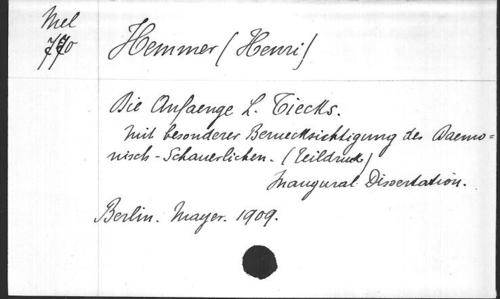 Mel
770
Hemmer (Henri)
Die Anfaenge L. Tiecks.
Mit besonderer Beruecksichtigung des Daemo-
nisch-Schauerlichen. (Teildruck)
Inaugural Dissertation.
Berlin. Mayer. 1909.